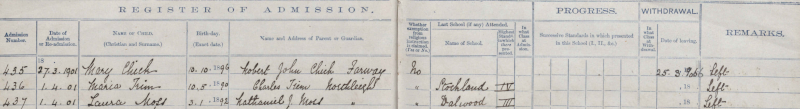 REGISTER OF ADMISSION.
PROGRESS.
WITHDRAWAL.
Admission Number. Date of Admission or Re-admission. NAME OF CHILD. (Christian and Surname.) Birth-day. (Exact date.) Name and Address of Parent or Guardian. Whether exemption from religious instruction is claimed. (Yes or No.) Last School (if any) Attended. Name of School. Successive Standards in which presented in this School (I., II., &c.) Date of leaving. REMARKS.
18
435 27.3.1901 Mary Chich 10.10.1896 Robert John Chich Farway No 25.3.1906 Left
436 1.4.01 Maria Trim 10.5.1890 Charles Trim " Stockland IV .18 Left
437 1.4.01 Laura Moss 3.1.1892 Nathaniel J. Moss " " Dalwood III .18 Left